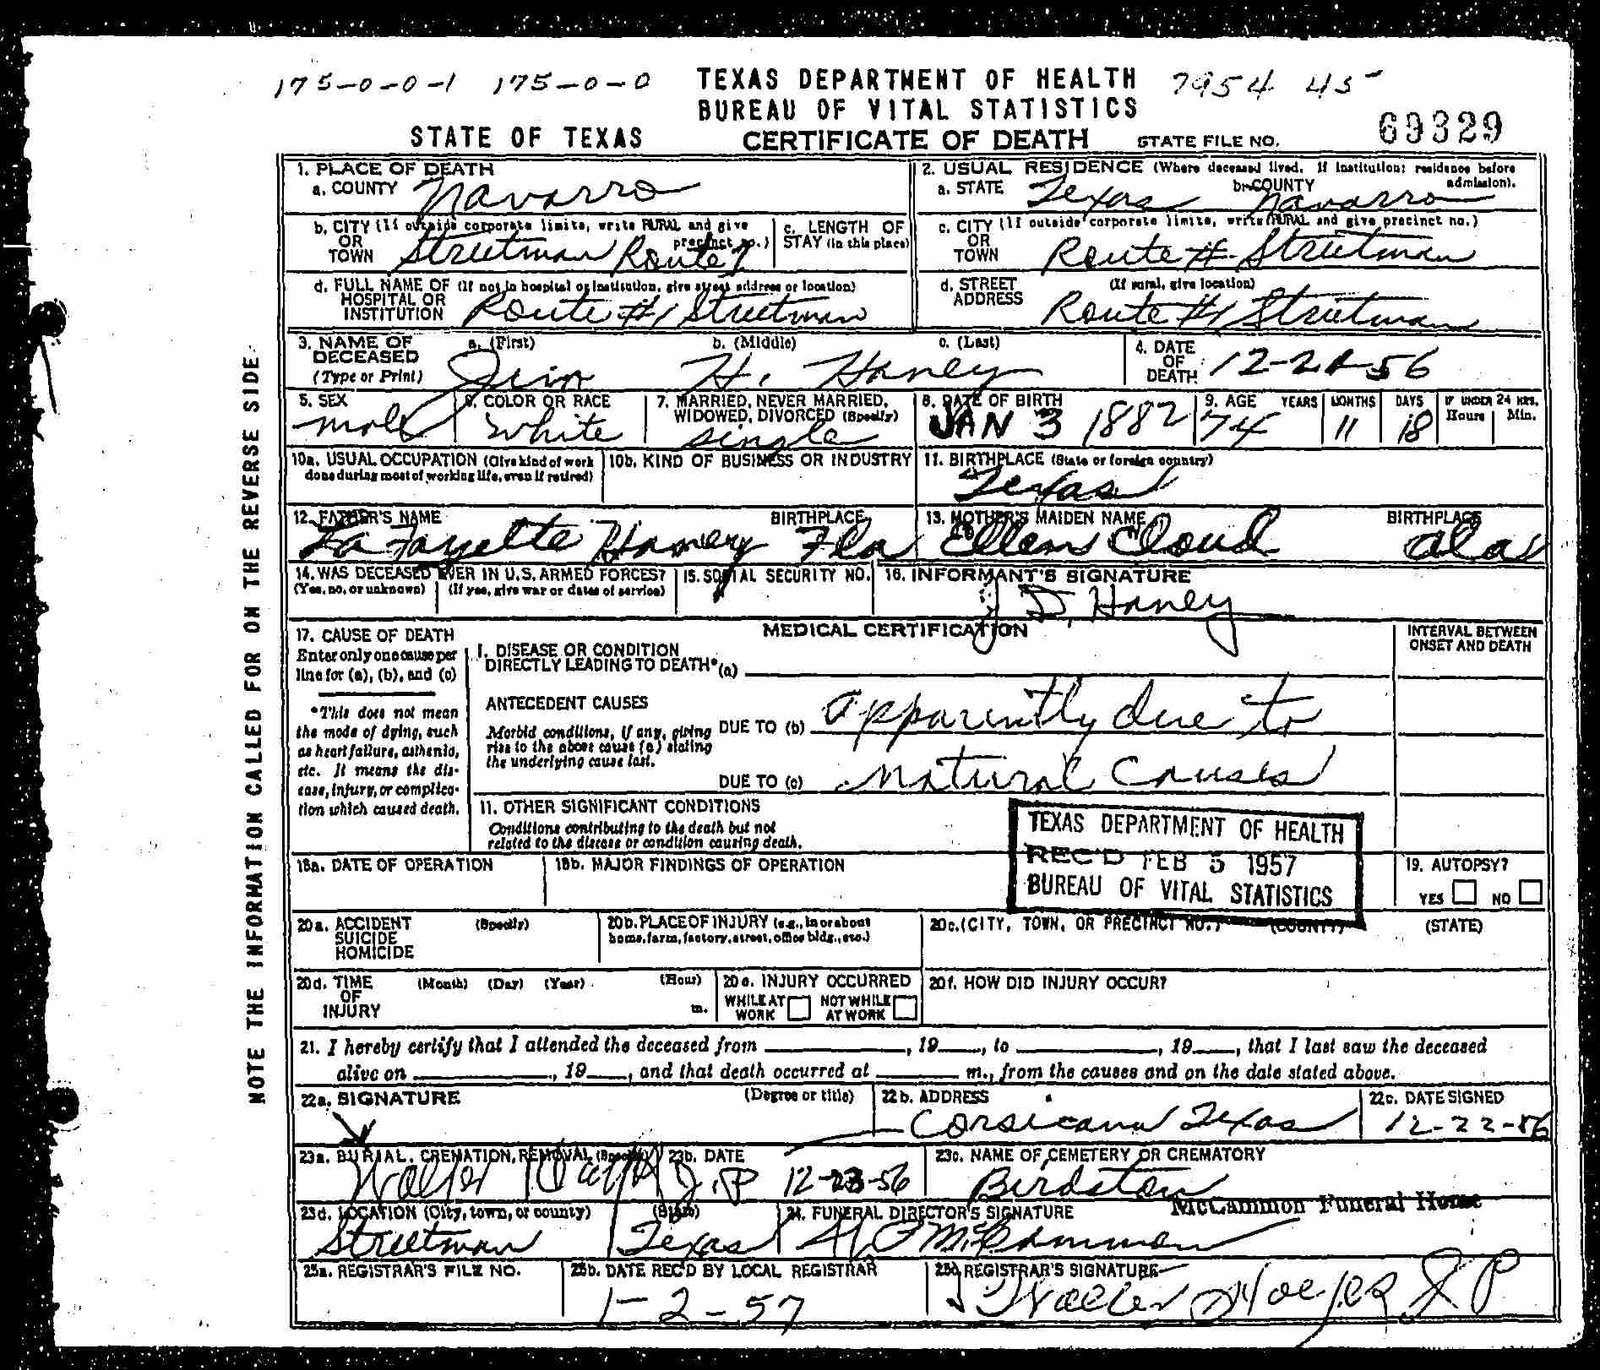 175-0-0-1 175-0-0 TEXAS DEPARTMENT OF HEALTH 7954 45
BUREAU OF VITAL STATISTICS
STATE OF TEXAS CERTIFICATE OF DEATH STATE FILE NO. 69329
NOTE THE INFORMATION CALLED FOR ON THE REVERSE SIDE
1. PLACE OF DEATH
a. COUNTY Navarro
2. USUAL RESIDENCE (Where deceased lived. If institution: residence before admission).
a. STATE Texas b. COUNTY Navarro
b. CITY (If outside corporate limits, write RURAL and give precinct no.)
OR
TOWN Streetman Route 1
c. LENGTH OF
STAY (in this place)
c. CITY (If outside corporate limits, write RURAL and give precinct no.)
OR
TOWN Route # Streetman
d. FULL NAME OF (If not in hospital or institution, give street address or location)
HOSPITAL OR
INSTITUTION Route #1 Streetman
d. STREET (If rural, give location)
ADDRESS Route #1 Streetman
3. NAME OF DECEASED (Type or Print)
a. (First) b. (Middle) c. (Last)
Jim H. Haney
4. DATE OF DEATH 12-21-56
5. SEX
male
6. COLOR OR RACE
White
7. MARRIED, NEVER MARRIED,
WIDOWED, DIVORCED (Specify)
single
8. DATE OF BIRTH
JAN 3 1882
9. AGE YEARS MONTHS DAYS IF UNDER 24 HRS.
Hours Min.
74 11 18
10a. USUAL OCCUPATION (Give kind of work
done during most of working life, even if retired)
10b. KIND OF BUSINESS OR INDUSTRY
11. BIRTHPLACE (State or foreign country)
Texas
12. FATHER'S NAME BIRTHPLACE
LaFayette Haney Fla
13. MOTHER'S MAIDEN NAME BIRTHPLACE
Ellen Cloud Ala
14. WAS DECEASED EVER IN U.S. ARMED FORCES?
(Yes, no, or unknown) (If yes, give war or dates of service)
15. SOCIAL SECURITY NO.
16. INFORMANT'S SIGNATURE
J D. Haney
MEDICAL CERTIFICATION
INTERVAL BETWEEN
ONSET AND DEATH
17. CAUSE OF DEATH
Enter only one cause per
line for (a), (b), and (c)
*This does not mean
the mode of dying, such
as heart failure, asthenia,
etc. It means the dis-
ease, injury, or complica-
tion which caused death.
I. DISEASE OR CONDITION
DIRECTLY LEADING TO DEATH*(a)
ANTECEDENT CAUSES
Morbid conditions, if any, giving
rise to the above cause (a) stating
the underlying cause last.
DUE TO (b) apparently due to
DUE TO (c) natural causes
11. OTHER SIGNIFICANT CONDITIONS
Conditions contributing to the death but not
related to the disease or condition causing death.
TEXAS DEPARTMENT OF HEALTH
REC'D FEB 5 1957
BUREAU OF VITAL STATISTICS
18a. DATE OF OPERATION
18b. MAJOR FINDINGS OF OPERATION
19. AUTOPSY?
YES NO
20a. ACCIDENT (Specify)
SUICIDE
HOMICIDE
20b. PLACE OF INJURY (e.g., in or about
home, farm, factory, street, office bldg., etc.)
20c. (CITY, TOWN, OR PRECINCT NO.) (COUNTY) (STATE)
20d. TIME (Month) (Day) (Year) (Hour)
OF
INJURY m.
20e. INJURY OCCURRED
WHILE AT WORK NOT WHILE AT WORK
20f. HOW DID INJURY OCCUR?
21. I hereby certify that I attended the deceased from , 19 , to , 19 , that I last saw the deceased
alive on , 19 , and that death occurred at m., from the causes and on the date stated above.
22a. SIGNATURE (Degree or title)
22b. ADDRESS
Corsicana Texas
22c. DATE SIGNED
12-22-56
23a. BURIAL, CREMATION, REMOVAL (Specify)
Walter J.P
23b. DATE
12-23-56
23c. NAME OF CEMETERY OR CREMATORY
Birdston
McCammon Funeral Home
23d. LOCATION (City, town, or county) (State)
Streetman Texas
24. FUNERAL DIRECTOR'S SIGNATURE
McCammon
25a. REGISTRAR'S FILE NO.
25b. DATE REC'D BY LOCAL REGISTRAR
1-2-57
25c. REGISTRAR'S SIGNATURE
Walter Hayes J P